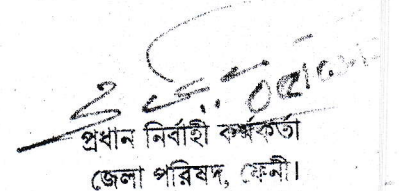 প্রধান নির্বাহী কর্মকর্তা
জেলা পরিষদ, ফেনী।